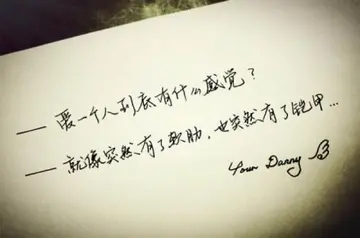 —— 爱一个人到底有什么感觉?
—— 就像突然有了软肋,也突然有了铠甲...
Your Danny